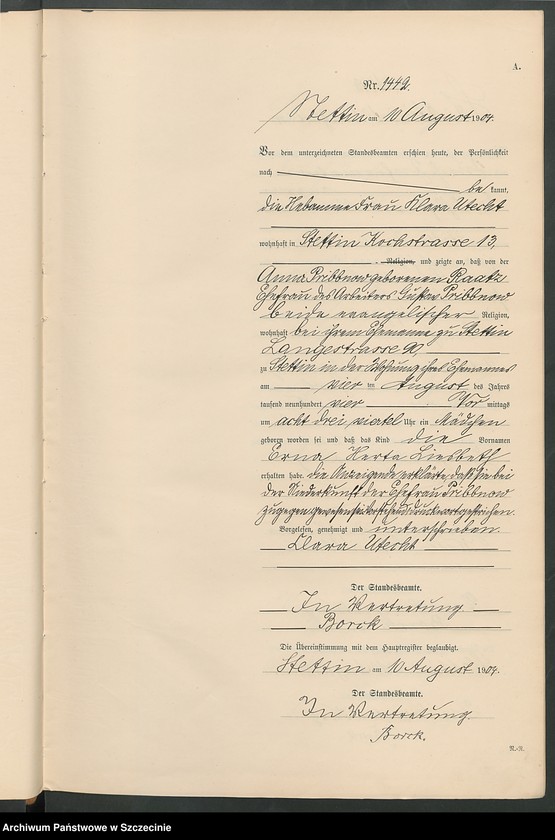 A.
Nr. 1442.
Stettin am 10 August 1904.
Vor dem unterzeichneten Standesbeamten erschien heute, der Persönlichkeit
nach
be kannt,
die Hebamme Frau Klara Utecht
wohnhaft in Stettin Kochstrasse 13,
Religion, und zeigte an, daß von der
Anna Pribbnow geborenen Raatz
Ehefrau des Arbeiters Gustav Pribbnow
beide evangelischer Religion,
wohnhaft bei ihrem Ehemanne zu Stettin
Langestrasse 90,
zu Stettin in der Wohnung ihres Ehemannes
am vier ten August des Jahres
tausend neunhundert vier Vor mittags
um acht drei viertel Uhr ein Mädchen
geboren worden sei und daß das Kind die Vornamen
Erna Herta Liesbeth
erhalten habe. die Anzeigende erklärte, daß sie bei
der Niederkunft der Ehefrau Pribbnow
zugegen gewesen sei. Vorstehend Druckwort gestrichen.
Vorgelesen, genehmigt und unterschrieben.
Clara Utecht
Der Standesbeamte.
In Vertretung
Borck
Die Übereinstimmung mit dem Hauptregister beglaubigt.
Stettin am 10 August 1904.
Der Standesbeamte.
In Vertretung.
Borck.
Archiwum Państwowe w Szczecinie